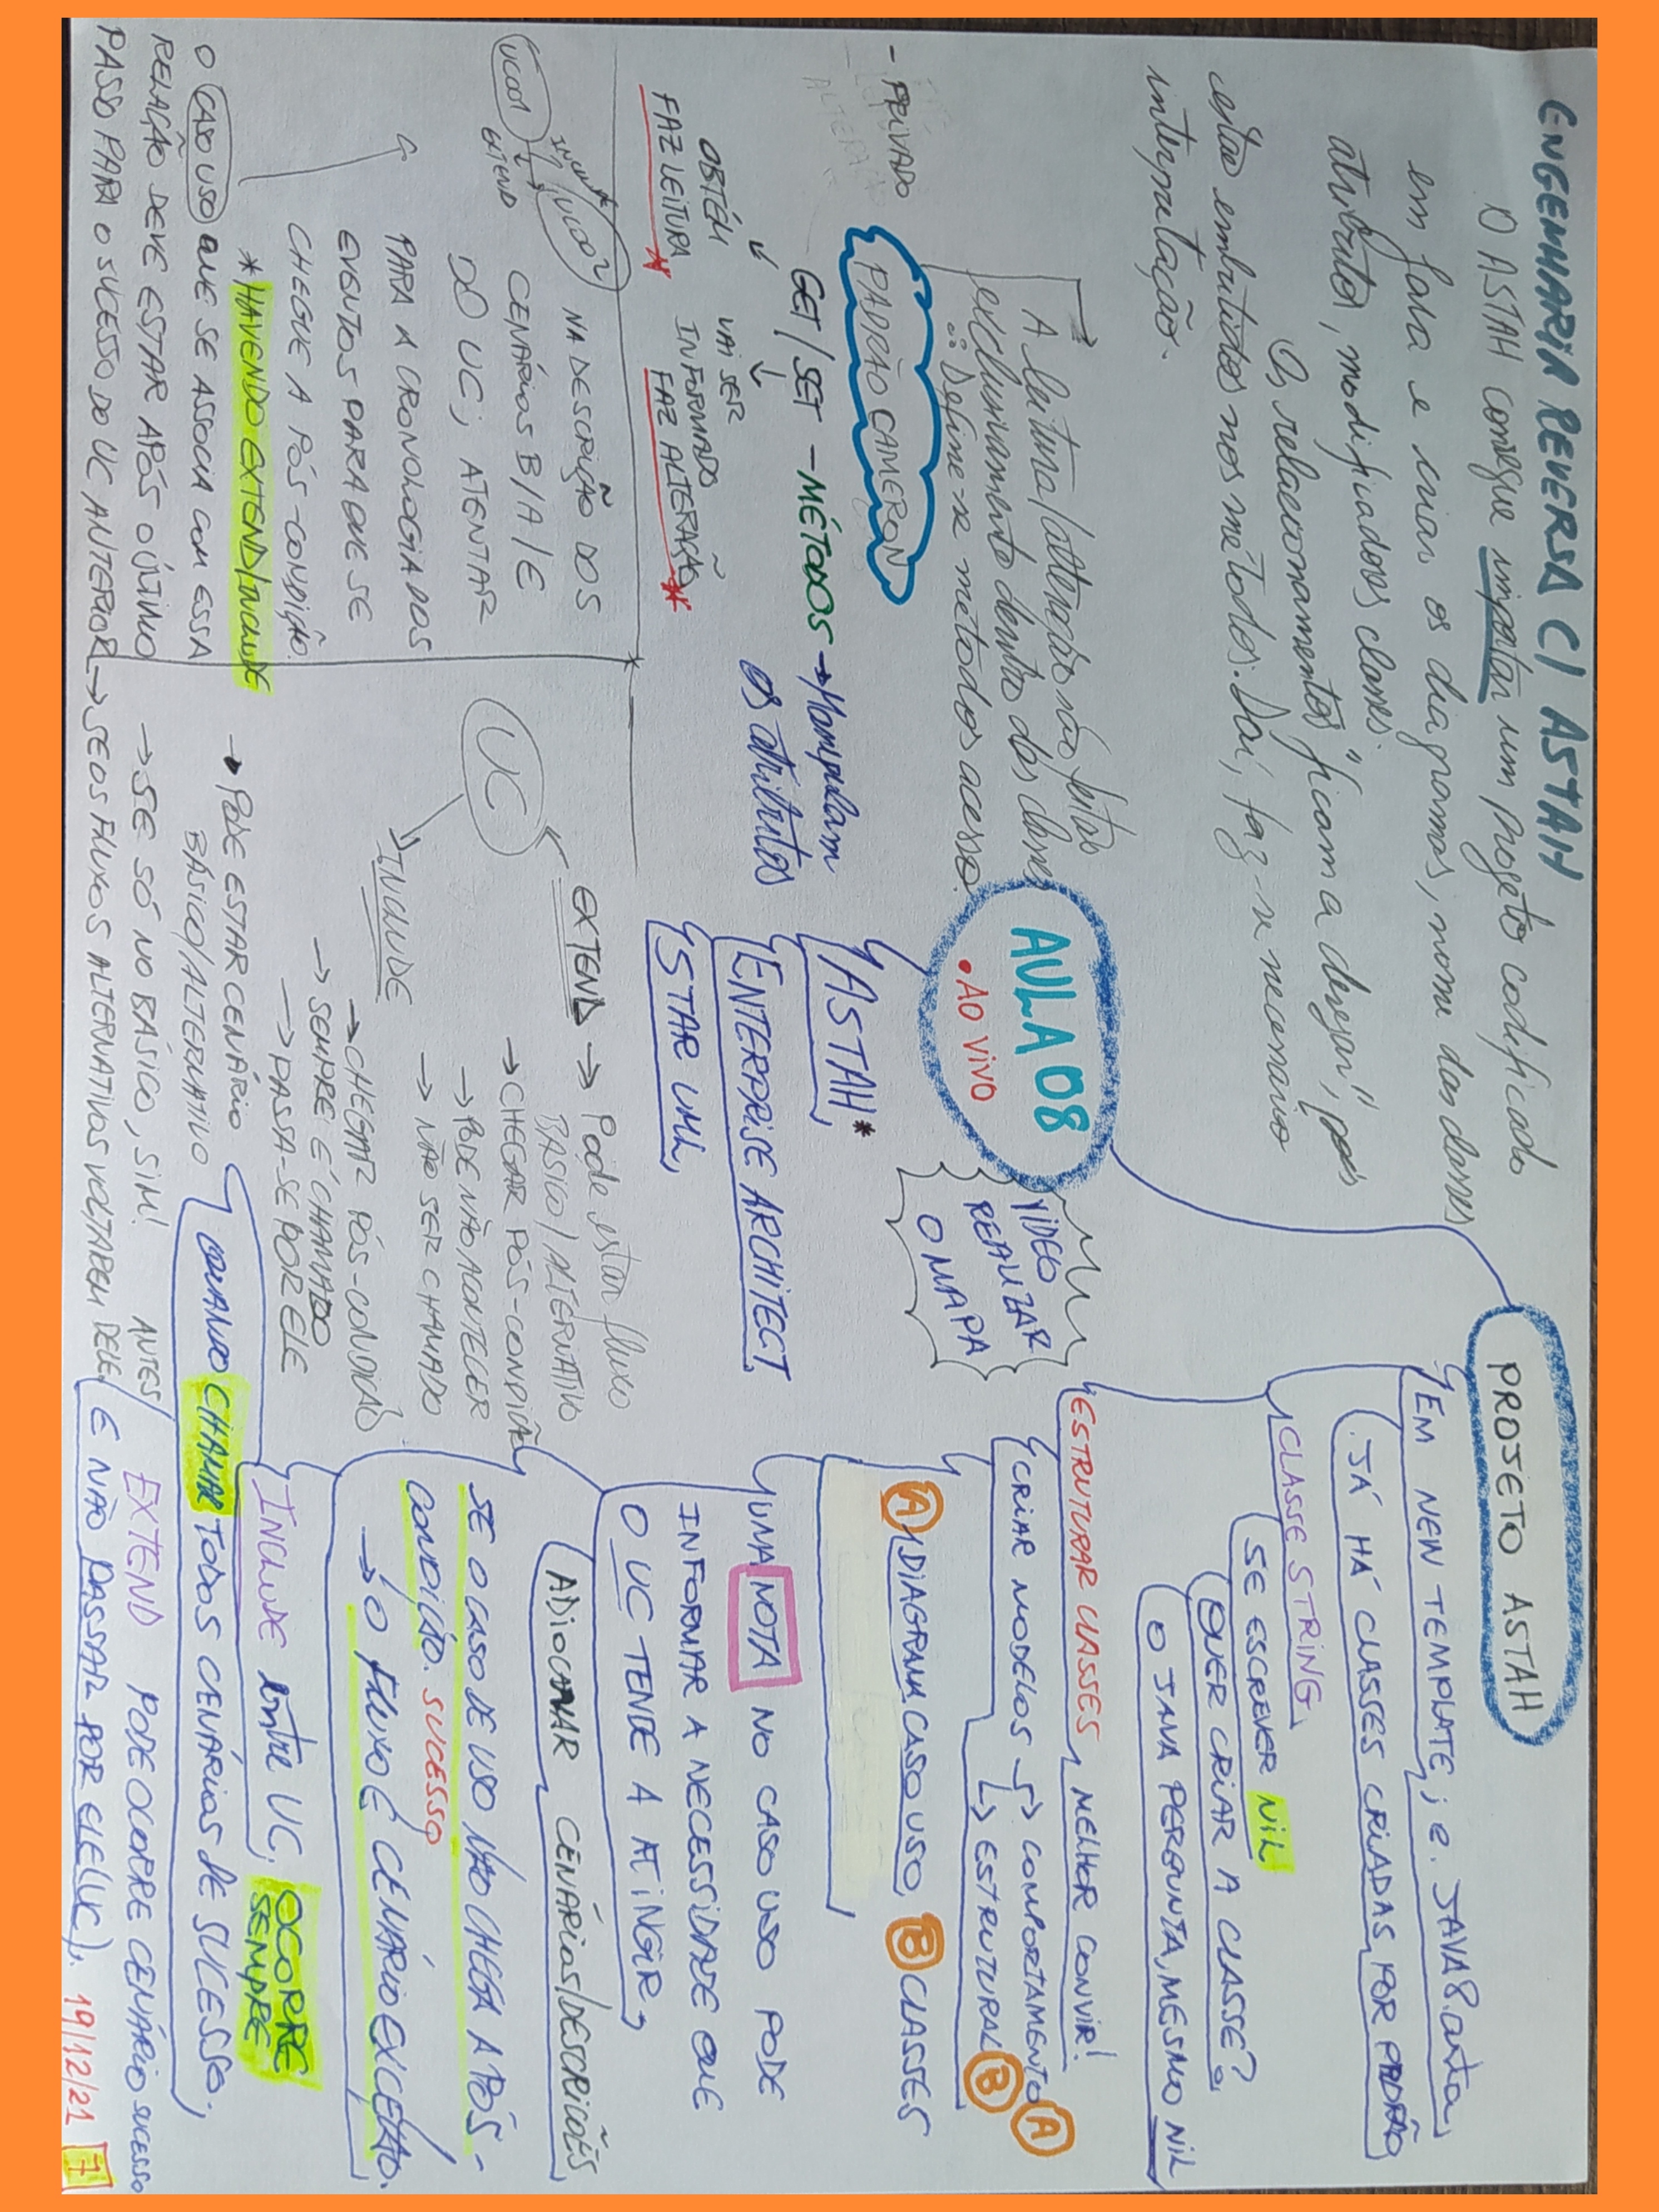 ENGENHARIA REVERSA C/ ASTAH
O ASTAH consegue importar um projeto codificado
em Java e criar os diagramas, nome das classes
atributos, modificadores classes.
Os relacionamentos "ficam a desejar", pois
estão embutidos nos métodos. Daí, faz-se necessário
interpretação.
A leitura/alteração são feitas
exclusivamente dentro das classes
∴ Define-se métodos acesso.
- PRIVADO
ALTERAÇÃO
PADRÃO CAMERON
GET / SET - MÉTODOS → Manipulam
os atributos
OBTÉM
FAZ LEITURA *
VAI SER
INFORMADO
FAZ ALTERAÇÃO *
AULA 08
• AO VIVO
VIDEO
REALIZAR
O MAPA
ASTAH*
ENTERPRISE ARCHITECT
STAR UML
PROJETO ASTAH
EM NEW TEMPLATE; e. JAVA8.asta
JÁ HÁ CLASSES CRIADAS POR PADRÃO
CLASSE STRING
SE ESCREVER NIL
QUER CRIAR A CLASSE?
O JAVA PERGUNTA, MESMO NIL
ESTRUTURAR CLASSES MELHOR CONVIR!
CRIAR MODELOS → COMPORTAMENTO A
→ ESTRUTURAL B
A DIAGRAMA CASO USO B CLASSES
UMA NOTA NO CASO USO PODE
INFORMAR A NECESSIDADE QUE
O UC TENDE A ATINGIR
ADIOCANAR CENÁRIOS/DESCRICÕES
SE O CASO DE USO NÃO CHEGA A PÓS-
CONDIÇÃO. SUCESSO
→ O FLUXO É CENÁRIO EXCEÇÃO.
INCLUDE entre UC, OCORRE
SEMPRE
QUANDO CHAMAR TODOS CENÁRIOS DE SUCESSO.
EXTEND PODE OCORRE CENÁRIO SUCESSO
E NÃO PASSAR POR ELE (UC).
19/12/21 7
UC001
INCLUDE
UC002
EXTEND
NA DESCRIÇÃO DOS
CENÁRIOS B/A/E
DO UC; ATENTAR
PARA A CRONOLOGIA DOS
EVENTOS PARA QUE SE
CHEGUE A PÓS-CONDIÇÃO.
* HAVENDO EXTEND/INCLUDE
O CASO USO QUE SE ASSOCIA COM ESSA
RELAÇÃO DEVE ESTAR APÓS O ÚLTIMO
PASSO PARA O SUCESSO DO UC ANTERIOR
UC
EXTEND → Pode estar fluxo
BÁSICO/ALTERNATIVO
→ CHEGAR PÓS-CONDIÇÃO
→ PODE NÃO ACONTECER
→ NÃO SER CHAMADO
INCLUDE
→ CHEGAR PÓS-CONDIÇÃO
→ SEMPRE É CHAMADO
→ PASSA-SE POR ELE
→ PODE ESTAR CENÁRIO
BÁSICO/ALTERNATIVO
→ SE SÓ NO BÁSICO, SIM!
→ SE OS FLUXOS ALTERNATIVOS VOLTAREM ANTES
DELE.